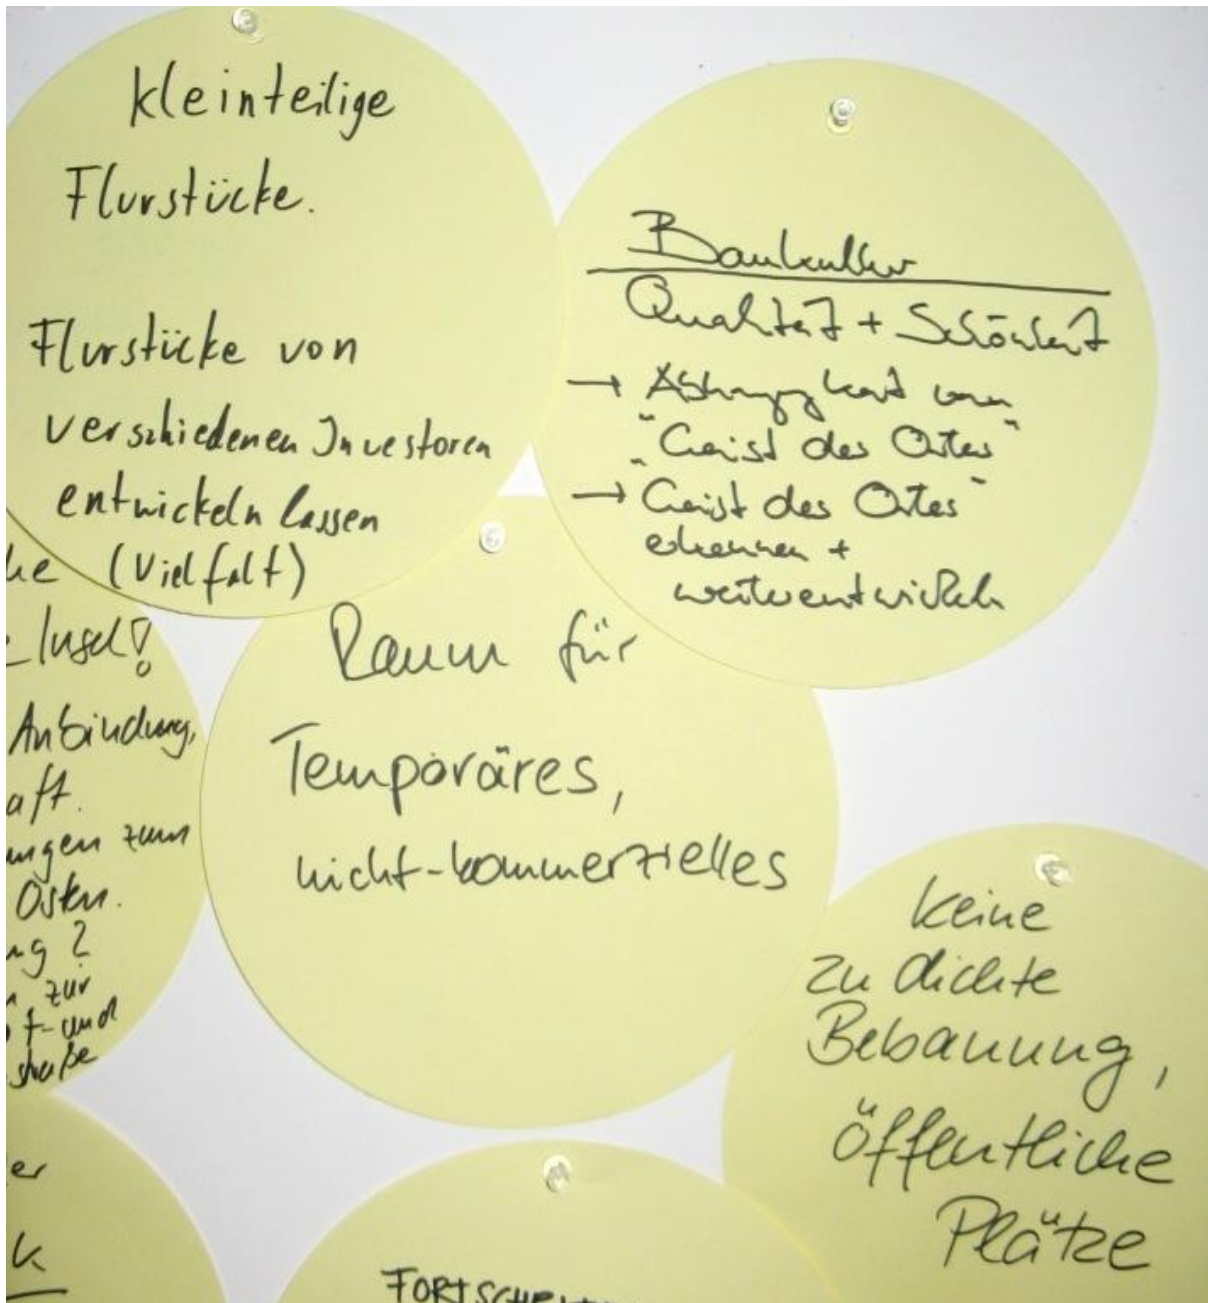 kleinteilige
Flurstücke.
Flurstücke von
verschiedenen Investoren
entwickeln lassen
(Vielfalt)
Baukultur
Qualität + Schönheit
→ Abhängigkeit vom
"Geist des Ortes"
→ "Geist des Ortes"
erkennen +
weiterentwickeln
Insel!
Anbindung,
zum
Osten.
?
zur
und
Raum für
Temporäres,
nicht-kommerzielles
keine
zu dichte
Bebauung,
öffentliche
Plätze
er
k